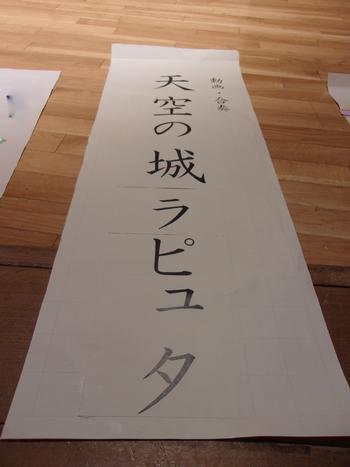 動画・合奏
天空の城ラピュタ